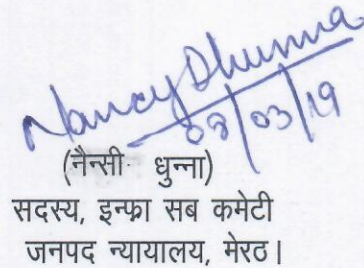 Nancy Dhunna
08/03/19
(नैन्सी धुन्ना)
सदस्य, इन्फ्रा सब कमेटी
जनपद न्यायालय, मेरठ।